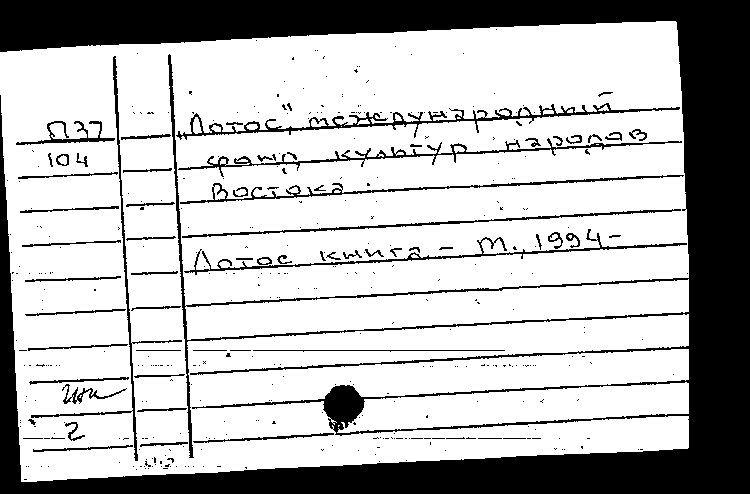 П37
104
„Лотос", международный
фонд культур народов
Востока.
Лотос книга – М., 1994–
2